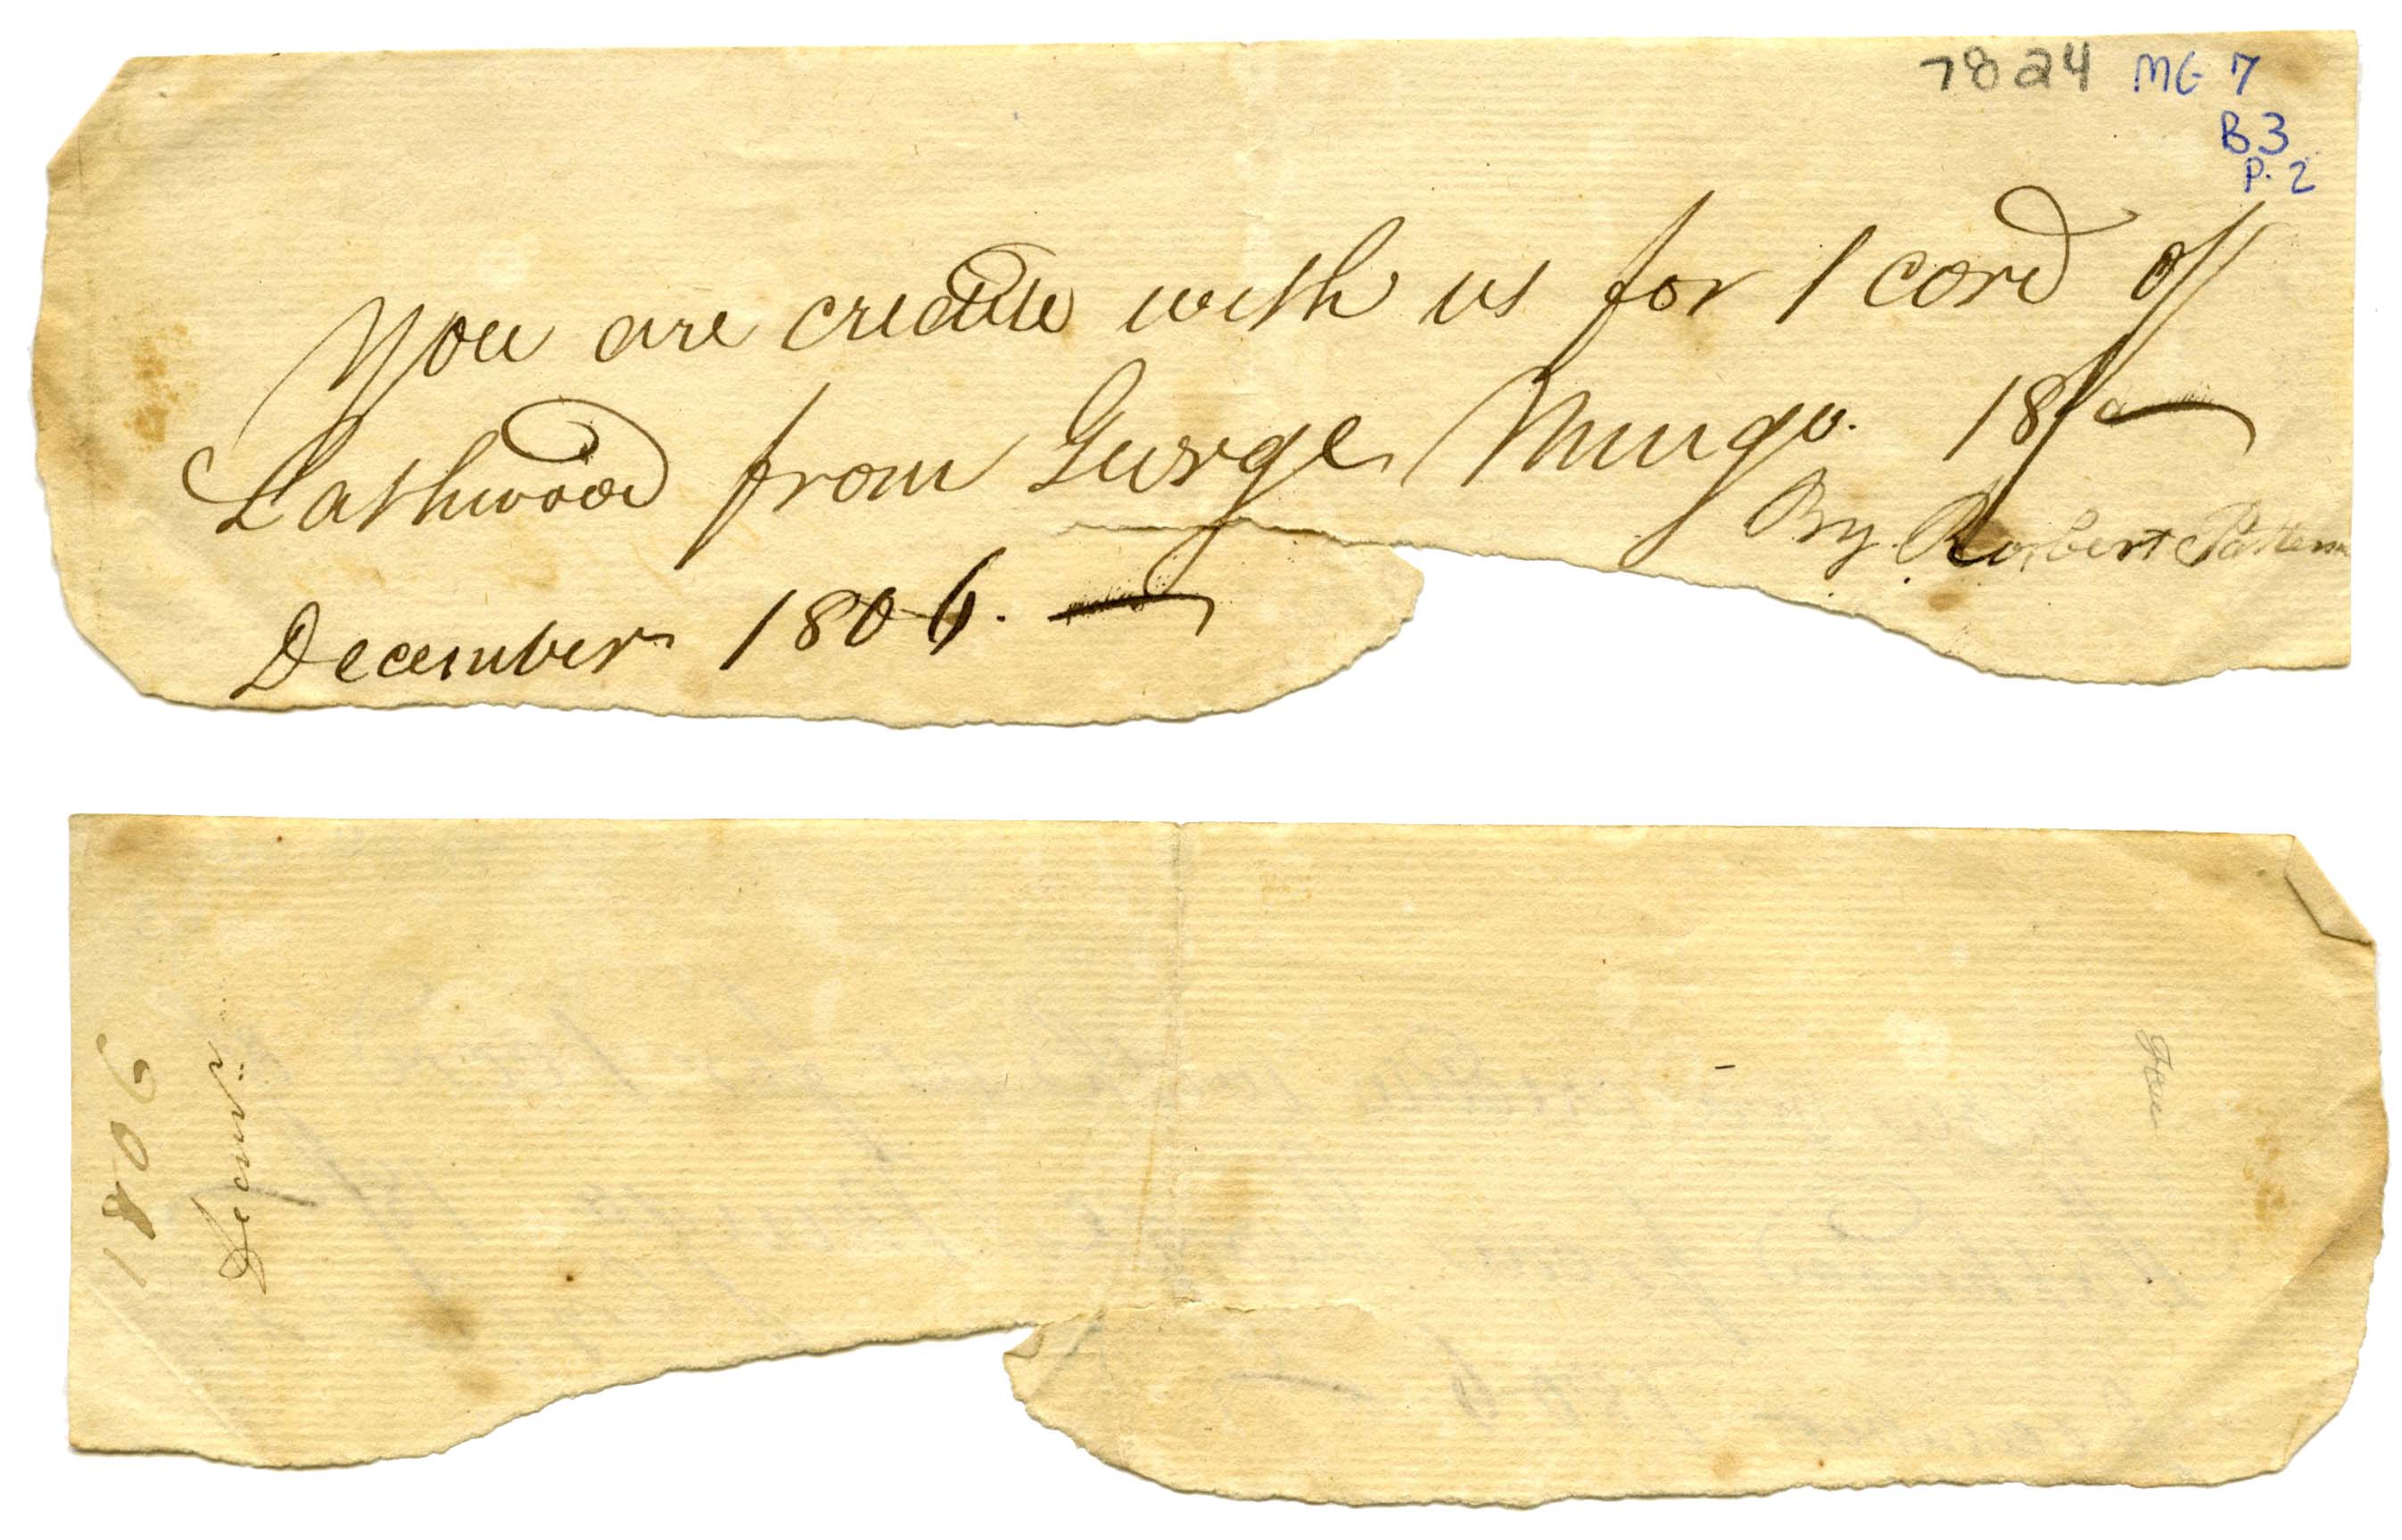 7824 MG 7
B3
P. 2
You are credite with us for 1 cord of
Lathwood from Gurge Mungo. 18/
By Rorbert Patterson
December 1806.
1806
Decemr.